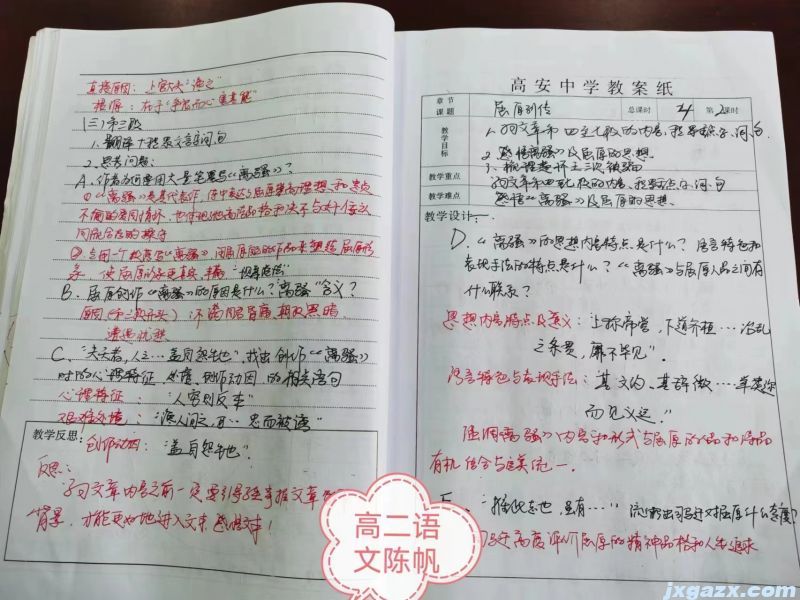 直接原因：上官大夫“谗之”
根源：在于“争宠而心害其能”
(三)第三段
1.翻译十积累文言词句
2.思考问题：
A.作者为何要用大量笔墨写《离骚》？
①《离骚》是其代表作，集中表达了屈原崇高理想和忠贞
不渝的爱国情怀，也体现他高洁品格和决不与奸佞之人
同流合污的操守
②专用一个段落写《离骚》，用屈原的作品来塑造屈原形
象，使屈原的形象更真实、丰满。“悦屡虑信”
B.屈原创作《离骚》的原因是什么？“离骚”含义？
原因（和二段开头）：不满国君盲庸、朝政黑暗
遭遇忧愁
C.“夫天者，人之…盖自怨生也”，找出创作《离骚》
时的心理特征、处境、创作动因，的相关语句
心理特征：“人穷则反本”
艰难处境：“谗人间之，… 忠而被谤”
教学反思：创作动因：“盖自怨生也”
反思：
学习文章内容之前一定要引导学生掌握文章
背景，才能更好地进入文本
高二语
文陈帆
高安中学教案纸
章节
课题
屈原列传
总课时
4
第2课时
教学目标
1.学习文章和四五七段的内容，积累重点字、词、句
2.感悟《离骚》及屈原的思想。
3.
教学重点
学习文章和四五七段的内容，积累重点字、词、句
教学难点
感悟《离骚》及屈原的思想。
教学设计：
D.《离骚》的思想内容特点是什么？语言特色和
表现手法的特点是什么？《离骚》与屈原人品之间有
什么联系？
思想内容特点及意义：上称帝喾，下道齐桓…治乱
之条贯，靡不毕见”。
语言特色与表现手法：其文约，其辞微…举类迩
而见义远。”
强调《离骚》内容和形式与屈原的人品和诗品
有机结合与完美统一.
E.“推此志也，虽有…”流露出司马迁对屈原什么态度？
司马迁高度评价屈原的精神品格和人生追求
jxgazx.com